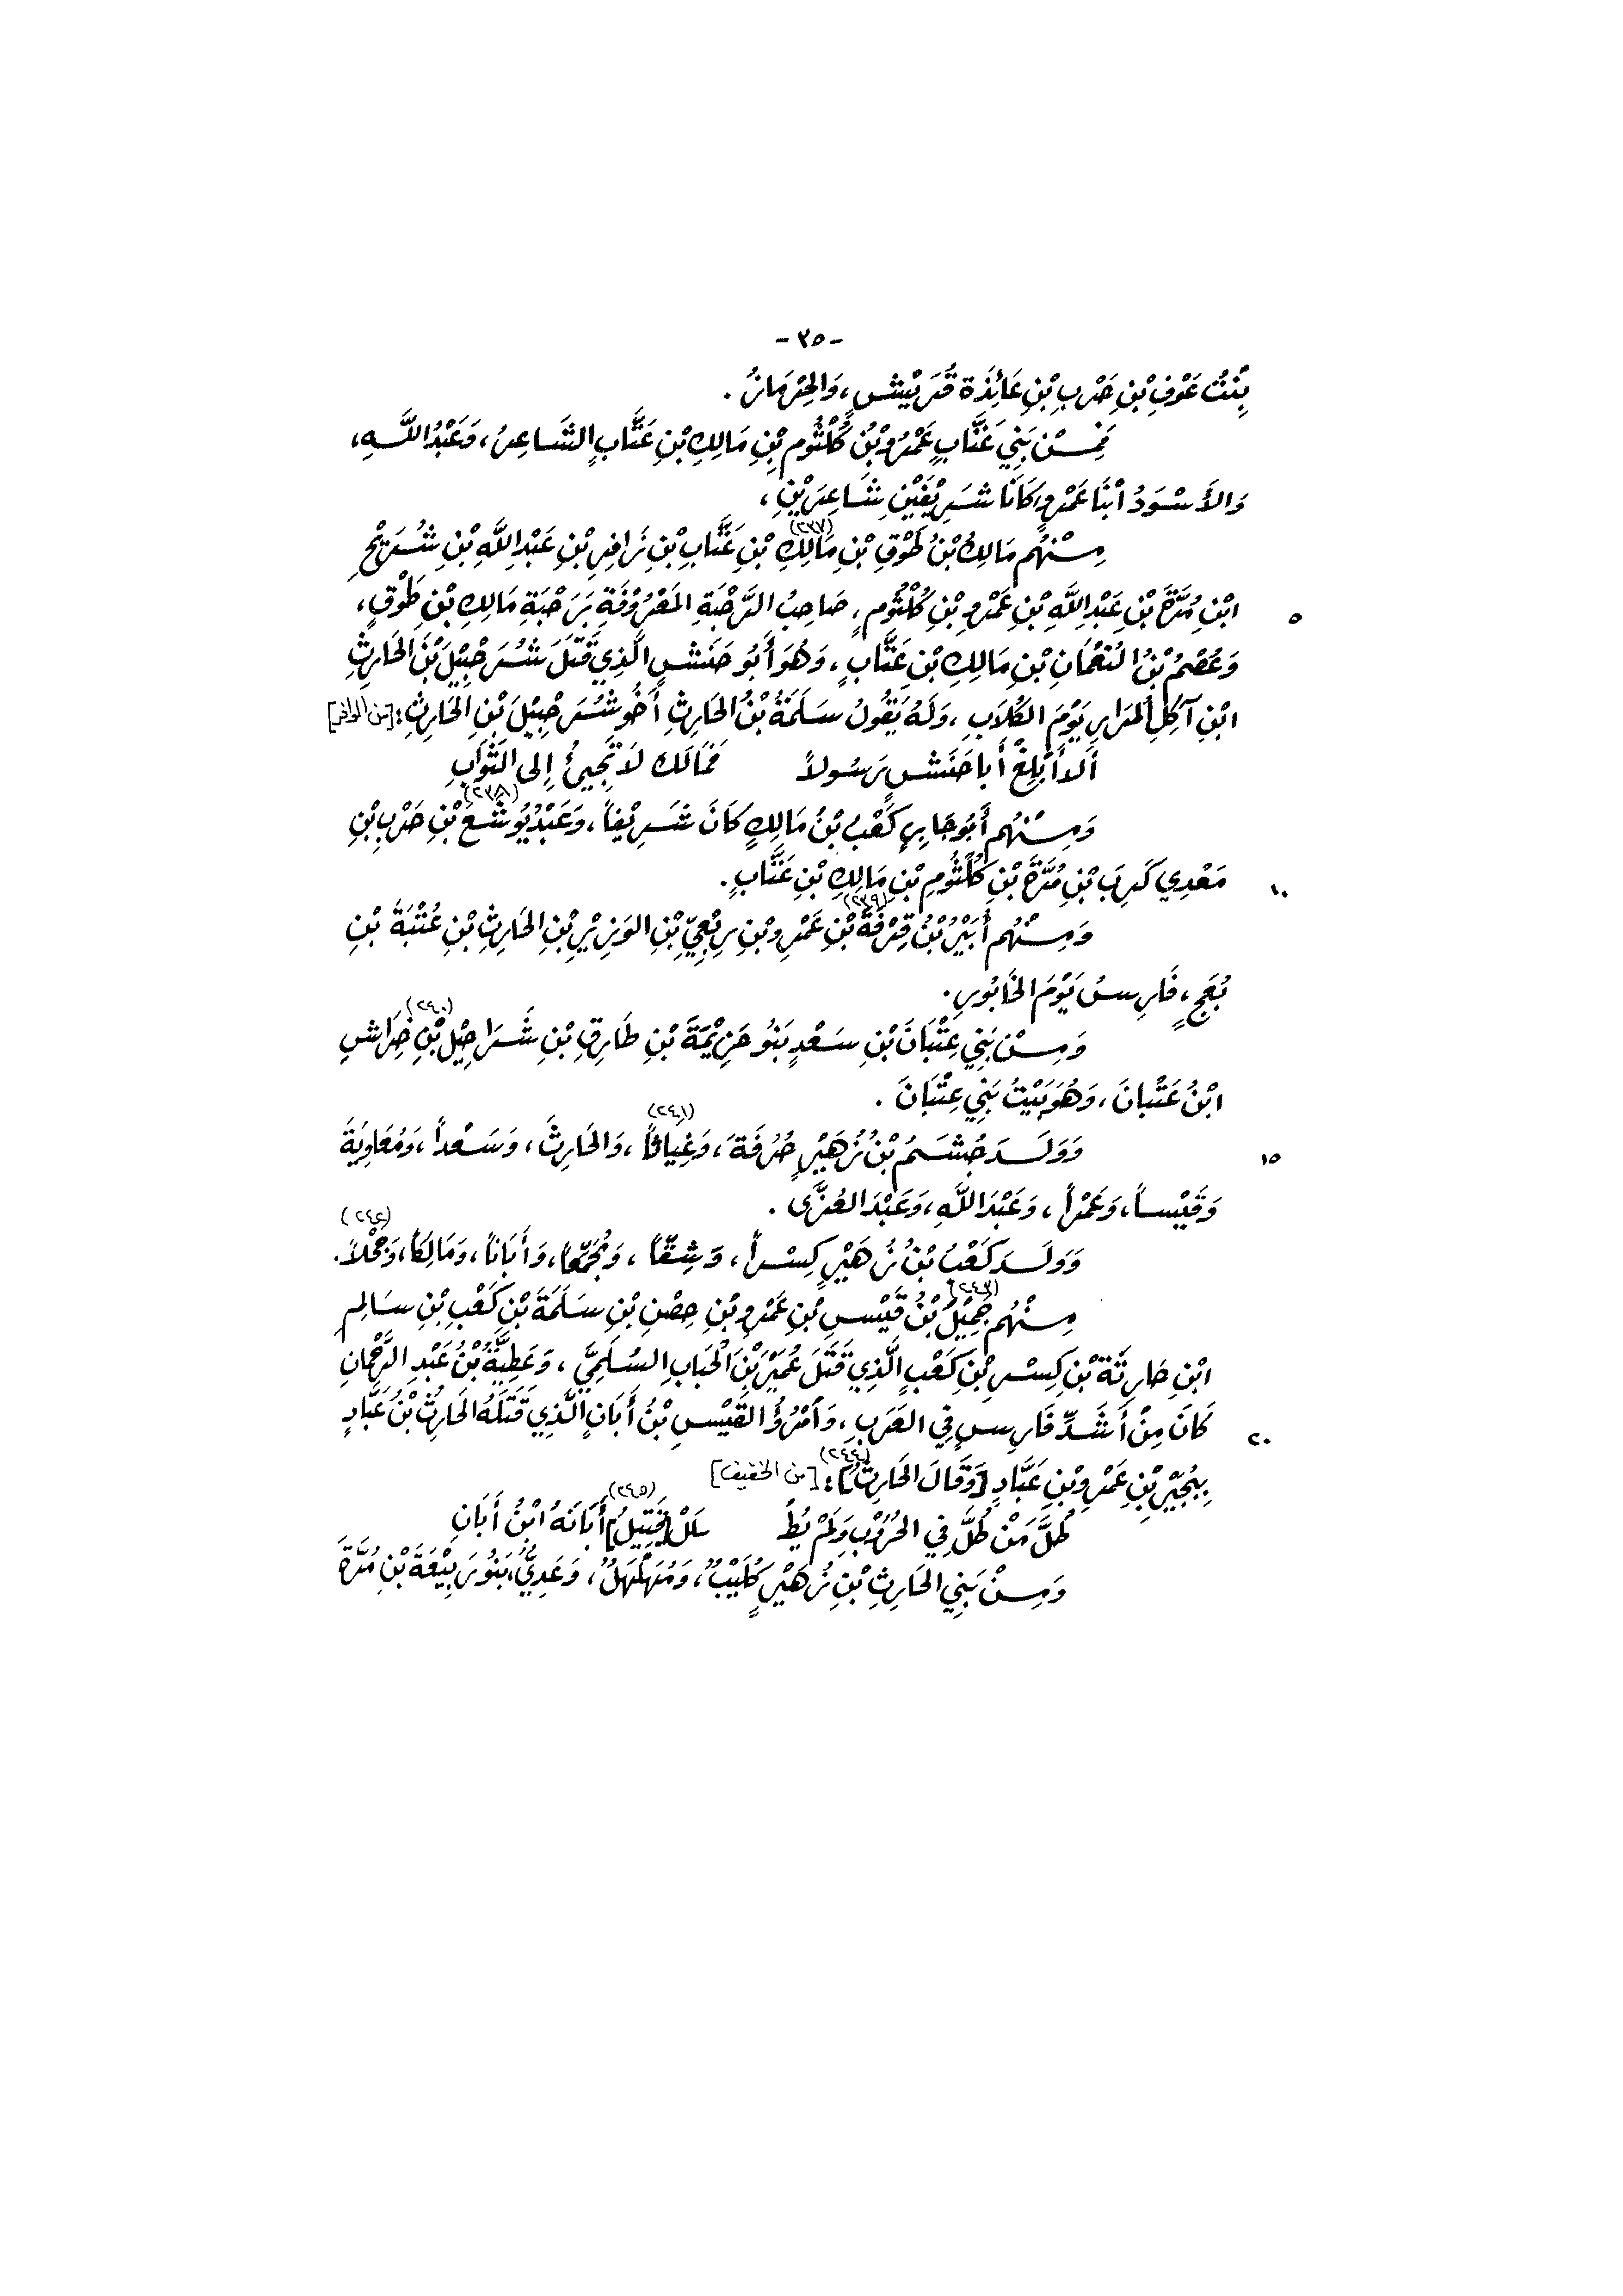 - ٣٥ -
بِنْتُ عَوْفِ بْنِ حَرْبِ بْنِ عَائِذَةَ قُرَيْشٍ، وَالحِرْمَازُ.
فَمِنْ بَنِي عَتَّابٍ عَمْرُو بْنُ كُلْثُومِ بْنِ مَالِكِ بْنِ عَتَّابٍ الشَّاعِرُ، وَعَبْدُ اللَّهِ،
وَالأَسْوَدُ ابْنَا عَمْرٍو كَانَا شَرِيْفَيْنِ شَاعِرَيْنِ،
مِنْهُم مَالِكُ بْنُ طَوْقِ بْنِ مَالِكِ (٢٣٧) بْنِ عَتَّابِ بْنِ زَافِرِ بْنِ عَبْدِ اللَّهِ بْنِ شُرَيْحِ
٥ ابْنِ مُرَّةَ بْنِ عَبْدِ اللَّهِ بْنِ عَمْرِو بْنِ كُلْثُومٍ، صَاحِبُ الرَّحْبَةِ المَعْرُوْفَةِ بِرَحْبَةِ مَالِكِ بْنِ طَوْقٍ،
وَعُصْمُ بْنُ النُعْمَانِ بْنِ مَالِكِ بْنِ عَتَّابٍ، وَهُوَ أَبُو حَنَشٍ الَّذِي قَتَلَ شُرَحْبِيْلَ بْنَ الحَارِثِ
ابْنِ آكِلِ المُرَارِ يَوْمَ الكُلَابِ، وَلَهُ يَقُولُ سَلَمَةُ بْنُ الحَارِثِ أَخُو شُرَحْبِيْلَ بْنِ الحَارِثِ: [من الوافر]
أَلا أَبْلِغْ أَبا حَنَشٍ رَسُولاً فَمَالَكَ لاَ تَجِيئُ إِلى الثَّوَابِ
وَمِنْهُم أَبُو جَابِرٍ كَعْبُ بْنُ مَالِكٍ كَانَ شَرِيْفاً، وَعَبْدُ يُوشَعَ (٢٣٨) بْنِ حَرْبِ بْنِ
١٠ مَعْدِي كَرِبَ بْنِ مُرَّةَ بْنِ كُلْثُومِ بْنِ مَالِكِ بْنِ عَتَّابٍ.
وَمِنْهُم أُبَيْرُ بْنُ قِرْفَةَ (٢٣٩) بْنِ عَمْرِو بْنِ رِبْعِيِّ بْنِ الوَزِيْرِ بْنِ الحَارِثِ بْنِ عُتْبَةَ بْنِ
بُعَجٍ، فَارِسُ يَوْمَ الخَابُورِ.
وَمِنْ بَنِي عِتْبَانَ بْنِ سَعْدٍ بَنُو خَزِيْمَةَ بْنِ طَارِقِ بْنِ شَرَاحِيْلَ بْنِ (٢٤٠) خِرَاشِ
ابْنُ عَتْبانَ، وَهُوَ بَيْتُ بَنِي عِتْبَانَ.
١٥ وَوَلَدَ جُشَمُ بْنُ زُهَيْرٍ حُرُفَةَ، وَغِيَاثاً (٢٤١)، وَالحَارِثَ، وَسَعْداً، وَمُعَاوِيَةَ
وَقَيْساً، وَعَمْراً، وَعَبْدَ اللَّهِ، وَعَبْدَ العُزَّى.
وَوَلَدَ كَعْبُ بْنُ زُهَيْرٍ كِسْراً، وَشِقّاً، وَمُجَمِّعاً، وَأَبَاناً، وَمَالِكاً، وَجُحْلاً. (٢٤٢)
مِنْهُم جَمِيْلُ (٢٤٣) بْنُ قَيْسِ بْنِ عَمْرِو بْنِ حِصْنِ بْنِ سَلَمَةَ بْنِ كَعْبِ بْنِ سَالِمِ
ابْنِ حَارِثَةَ بْنِ كِسْرِ بْنِ كَعْبٍ الَّذِي قَتَلَ عُمَيْرَ بْنَ الحُبَابِ السُلَمِيَّ، وَعَطِيَّةُ بْنُ عَبْدِ الرَّحْمَانِ
٢٠ كَانَ مِنْ أَشَدِّ فَارِسٍ فِي العَرَبِ، وَامْرُؤُ القَيْسِ بْنُ أَبَانٍ الَّذِي قَتَلَهُ الحَارِثُ بْنُ عَبَّادٍ
بِبُجَيْرِ بْنِ عَمْرِو بْنِ عَبَّادٍ [وَقَالَ الحَارِثُ] (٢٤٤): [من الخفيف]
طُلَّ مَنْ طُلَّ فِي الحُرُوْبِ وَلَمْ يُطْـ ـلَلْ [قَتِيلٌ] (٢٤٥) أَبَانَهُ ابْنُ أَبَانِ
وَمِنْ بَنِي الحَارِثِ بْنِ زُهَيْرٍ كُلَيْبٌ، وَمُهَلْهِلٌ، وَعَدِيٌّ، بَنُو رَبِيْعَةَ بْنِ مُرَّةَ